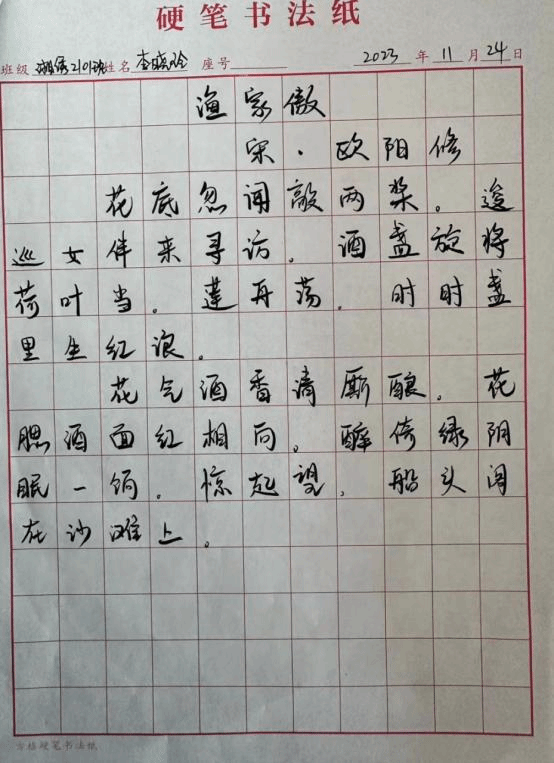 硬笔书法纸
班级 湘绣2101班 姓名 李晓玲 座号 2023年11月24日
渔家傲
宋·欧阳修
花底忽闻敲两桨。逡
巡女伴来寻访。酒盏旋将
荷叶当。莲舟荡。时时盏
里生红浪。
花气酒香清厮酿。花
腮酒面红相向。醉倚绿阴
眠一饷。惊起望,船头阁
在沙滩上。
方格硬笔书法纸